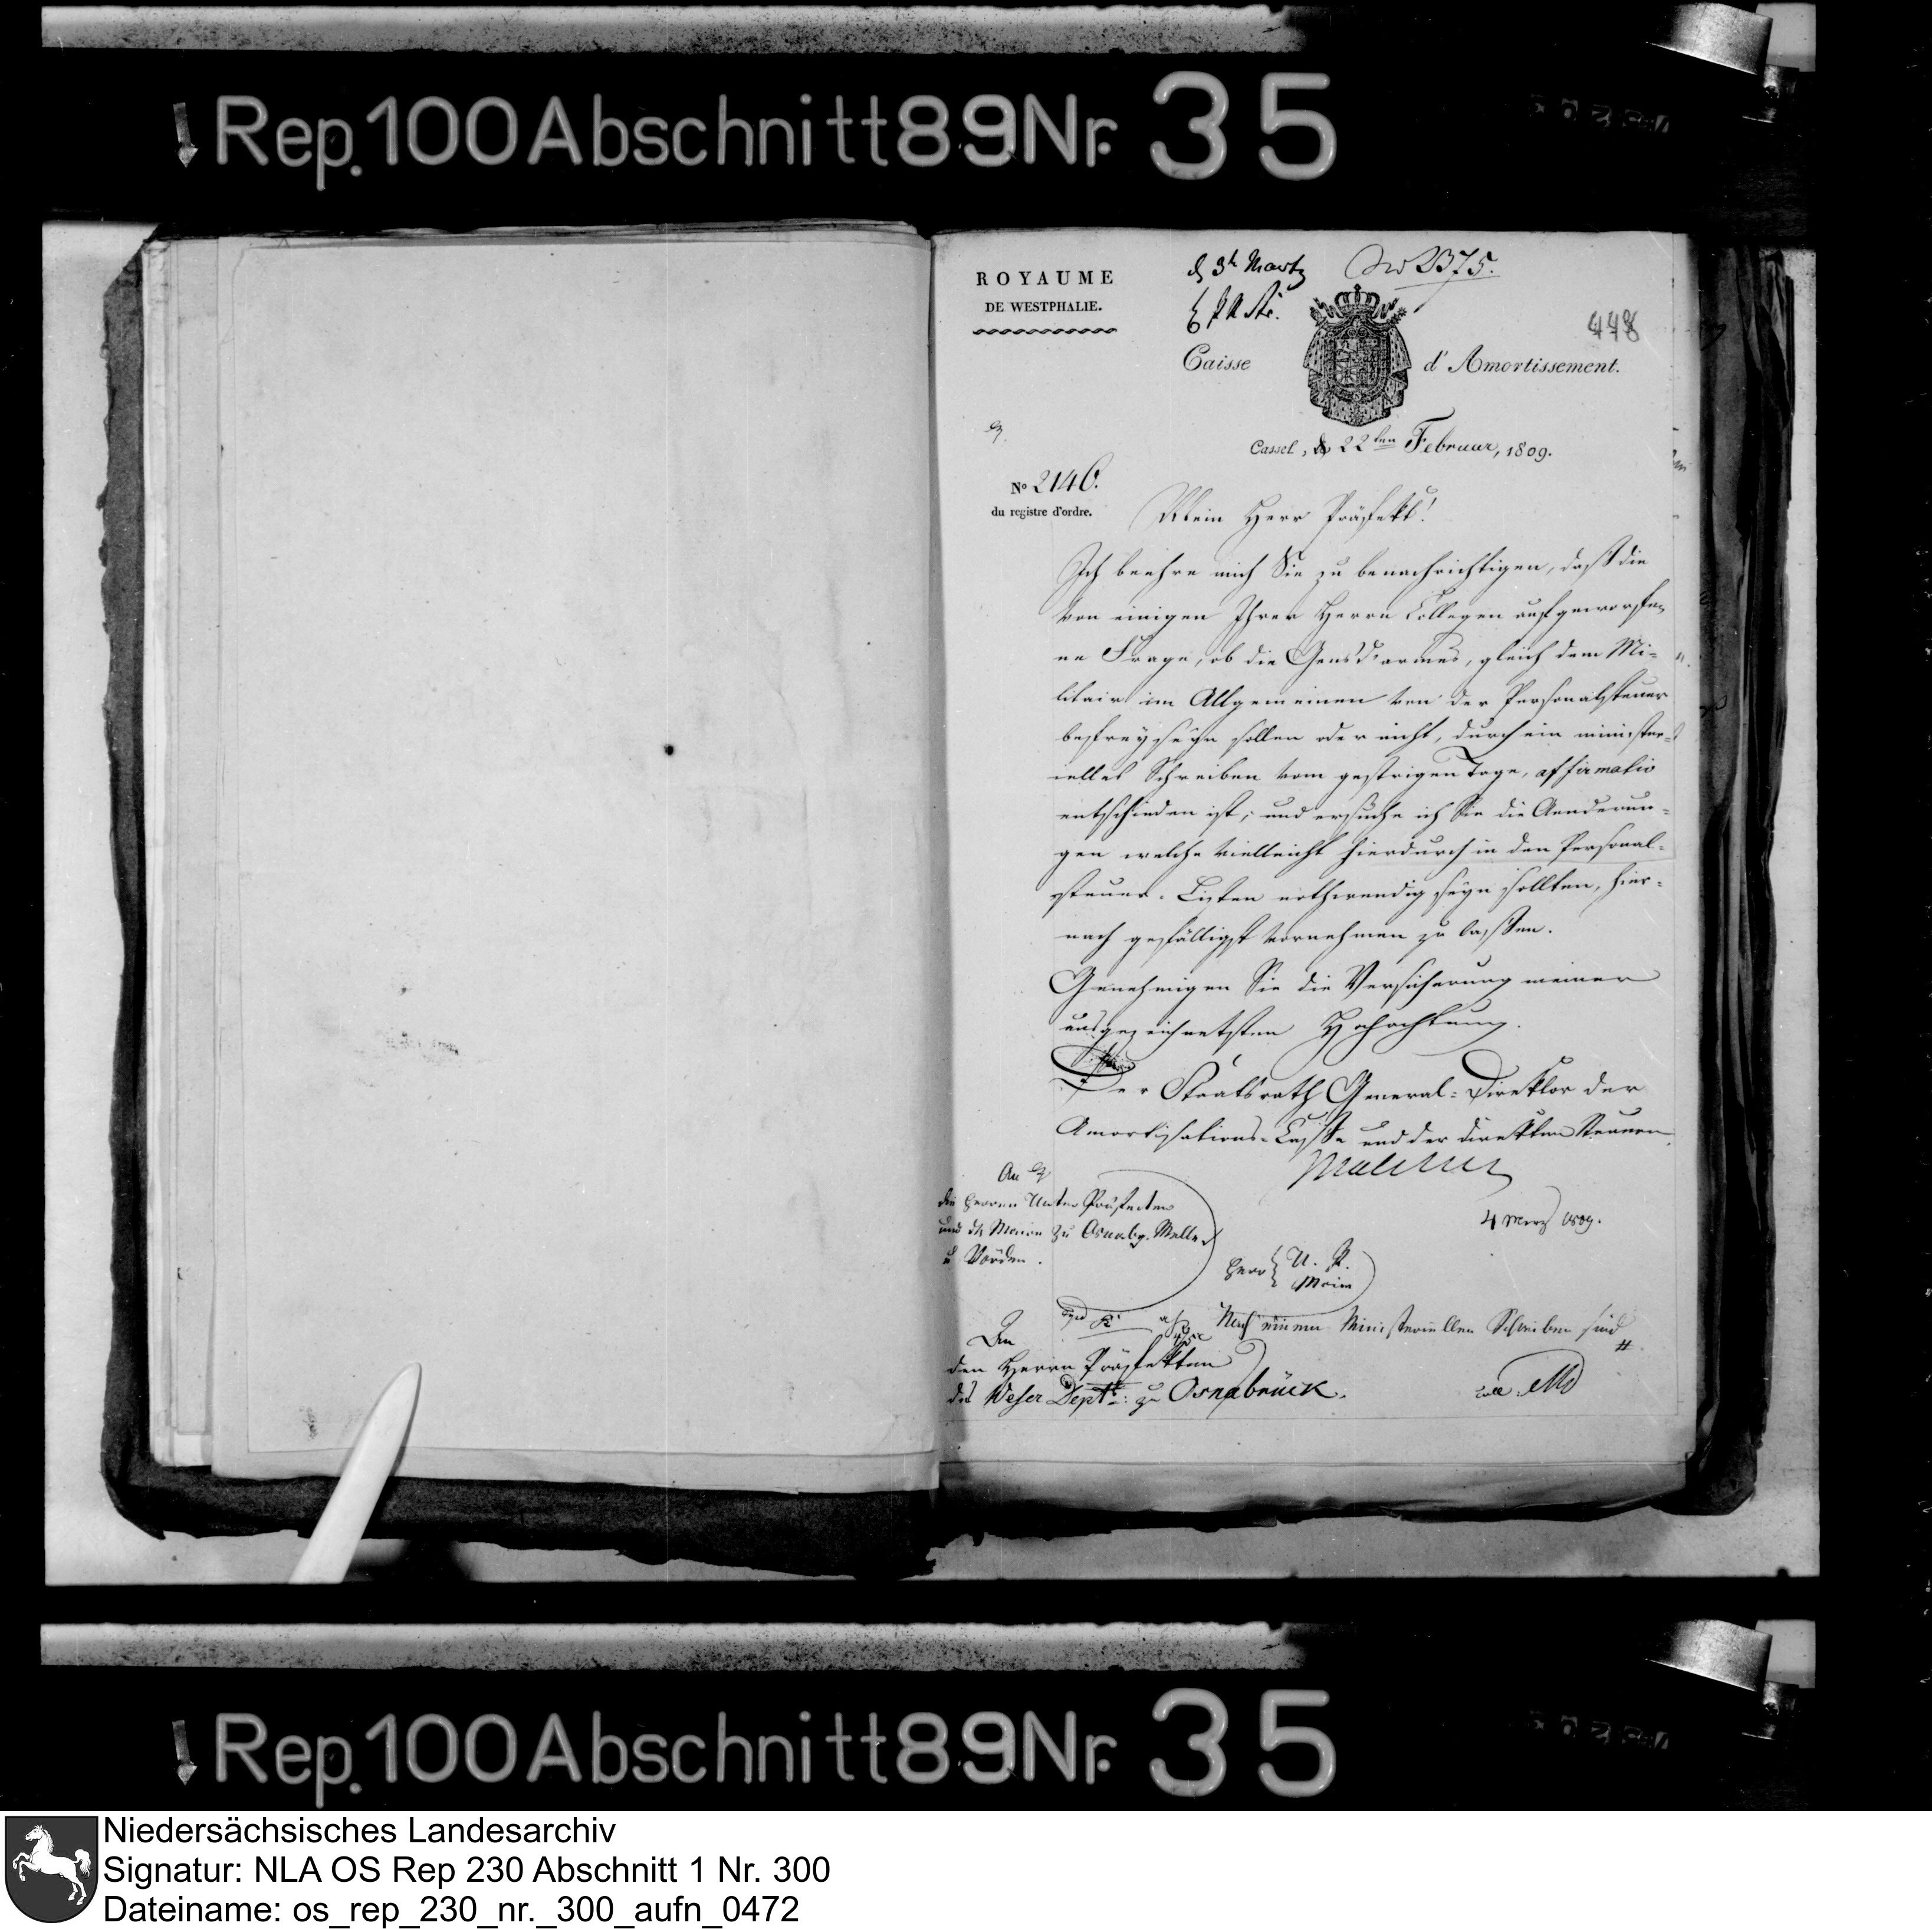 Rep. 100 Abschnitt 89 Nr. 35
ROYAUME
DE WESTPHALIE.
d 3t Martz
No 2375.
448
Caisse d'Amortissement.
Cassel, d 22ten Februar, 1809.
No 2140.
du registre d'ordre.
Mein Herr Präfekt!
Ich beehre mich Sie zu benachrichtigen, daß die
von einigen Ihrer Herrn Collegen aufgeworfe-
ne Frage, ob die Gensd'armes, gleich dem Mi-
litair im Allgemeinen von der Personalsteuer
befrey seyn sollen oder nicht, durch ein minister-
ielles Schreiben vom gestrigen Tage, affirmativ
entschieden ist; und ersuche ich Sie die Aenderun-
gen welche vielleicht hierdurch in den Personal-
steuer-Listen nothwendig seyn sollten, hier-
nach gefälligst vornehmen zu laßen.
Genehmigen Sie die Versicherung meiner
ausgezeichnetsten Hochachtung.
Der Staatsrath General-Direktor der
Amortisations-Casse und der direkten Steuern
Malchus
An
die Herren Unter Präfecten
und die Maire zu Osnabg. Melle
u Vörden.
4 Merz 1809.
Herr U. P.
Maire
Nach einem Ministeriellen Schreiben sind
An
den Herrn Präfekten
des Weser Dept: zu Osnabrück.
Rep. 100 Abschnitt 89 Nr. 35
Niedersächsisches Landesarchiv
Signatur: NLA OS Rep 230 Abschnitt 1 Nr. 300
Dateiname: os_rep_230_nr._300_aufn_0472